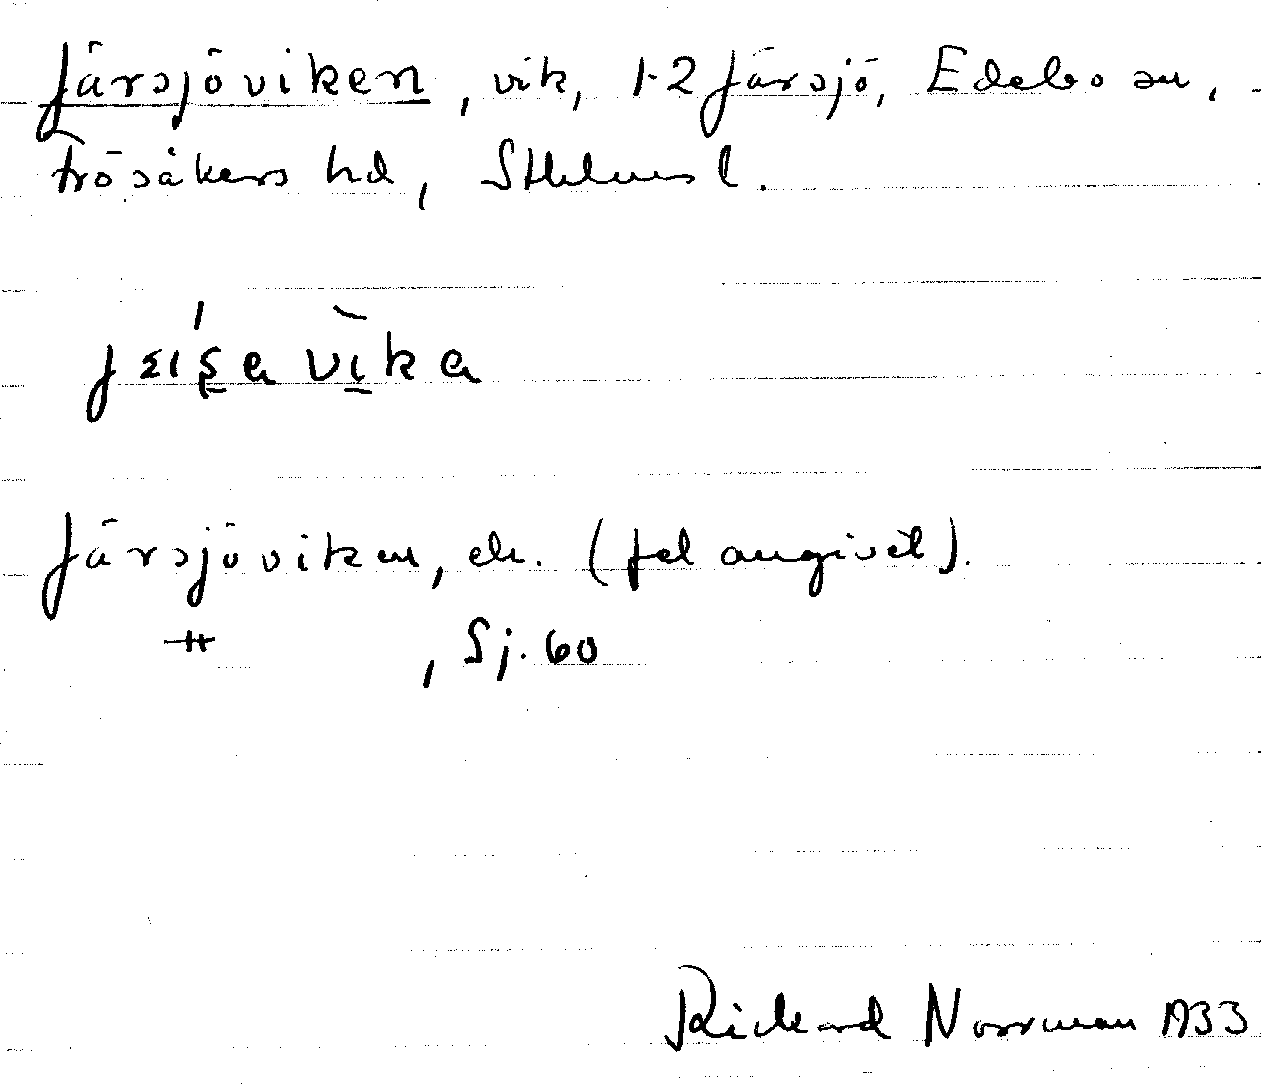 Järsjöviken, vik, 1-2 Järsjö, Edebo sn,
Frösåkers hd, Sthlms l.
Järsjöviken, ek. (fel angivet).
–"– , Sj. 60
Rickard Norrman 1933